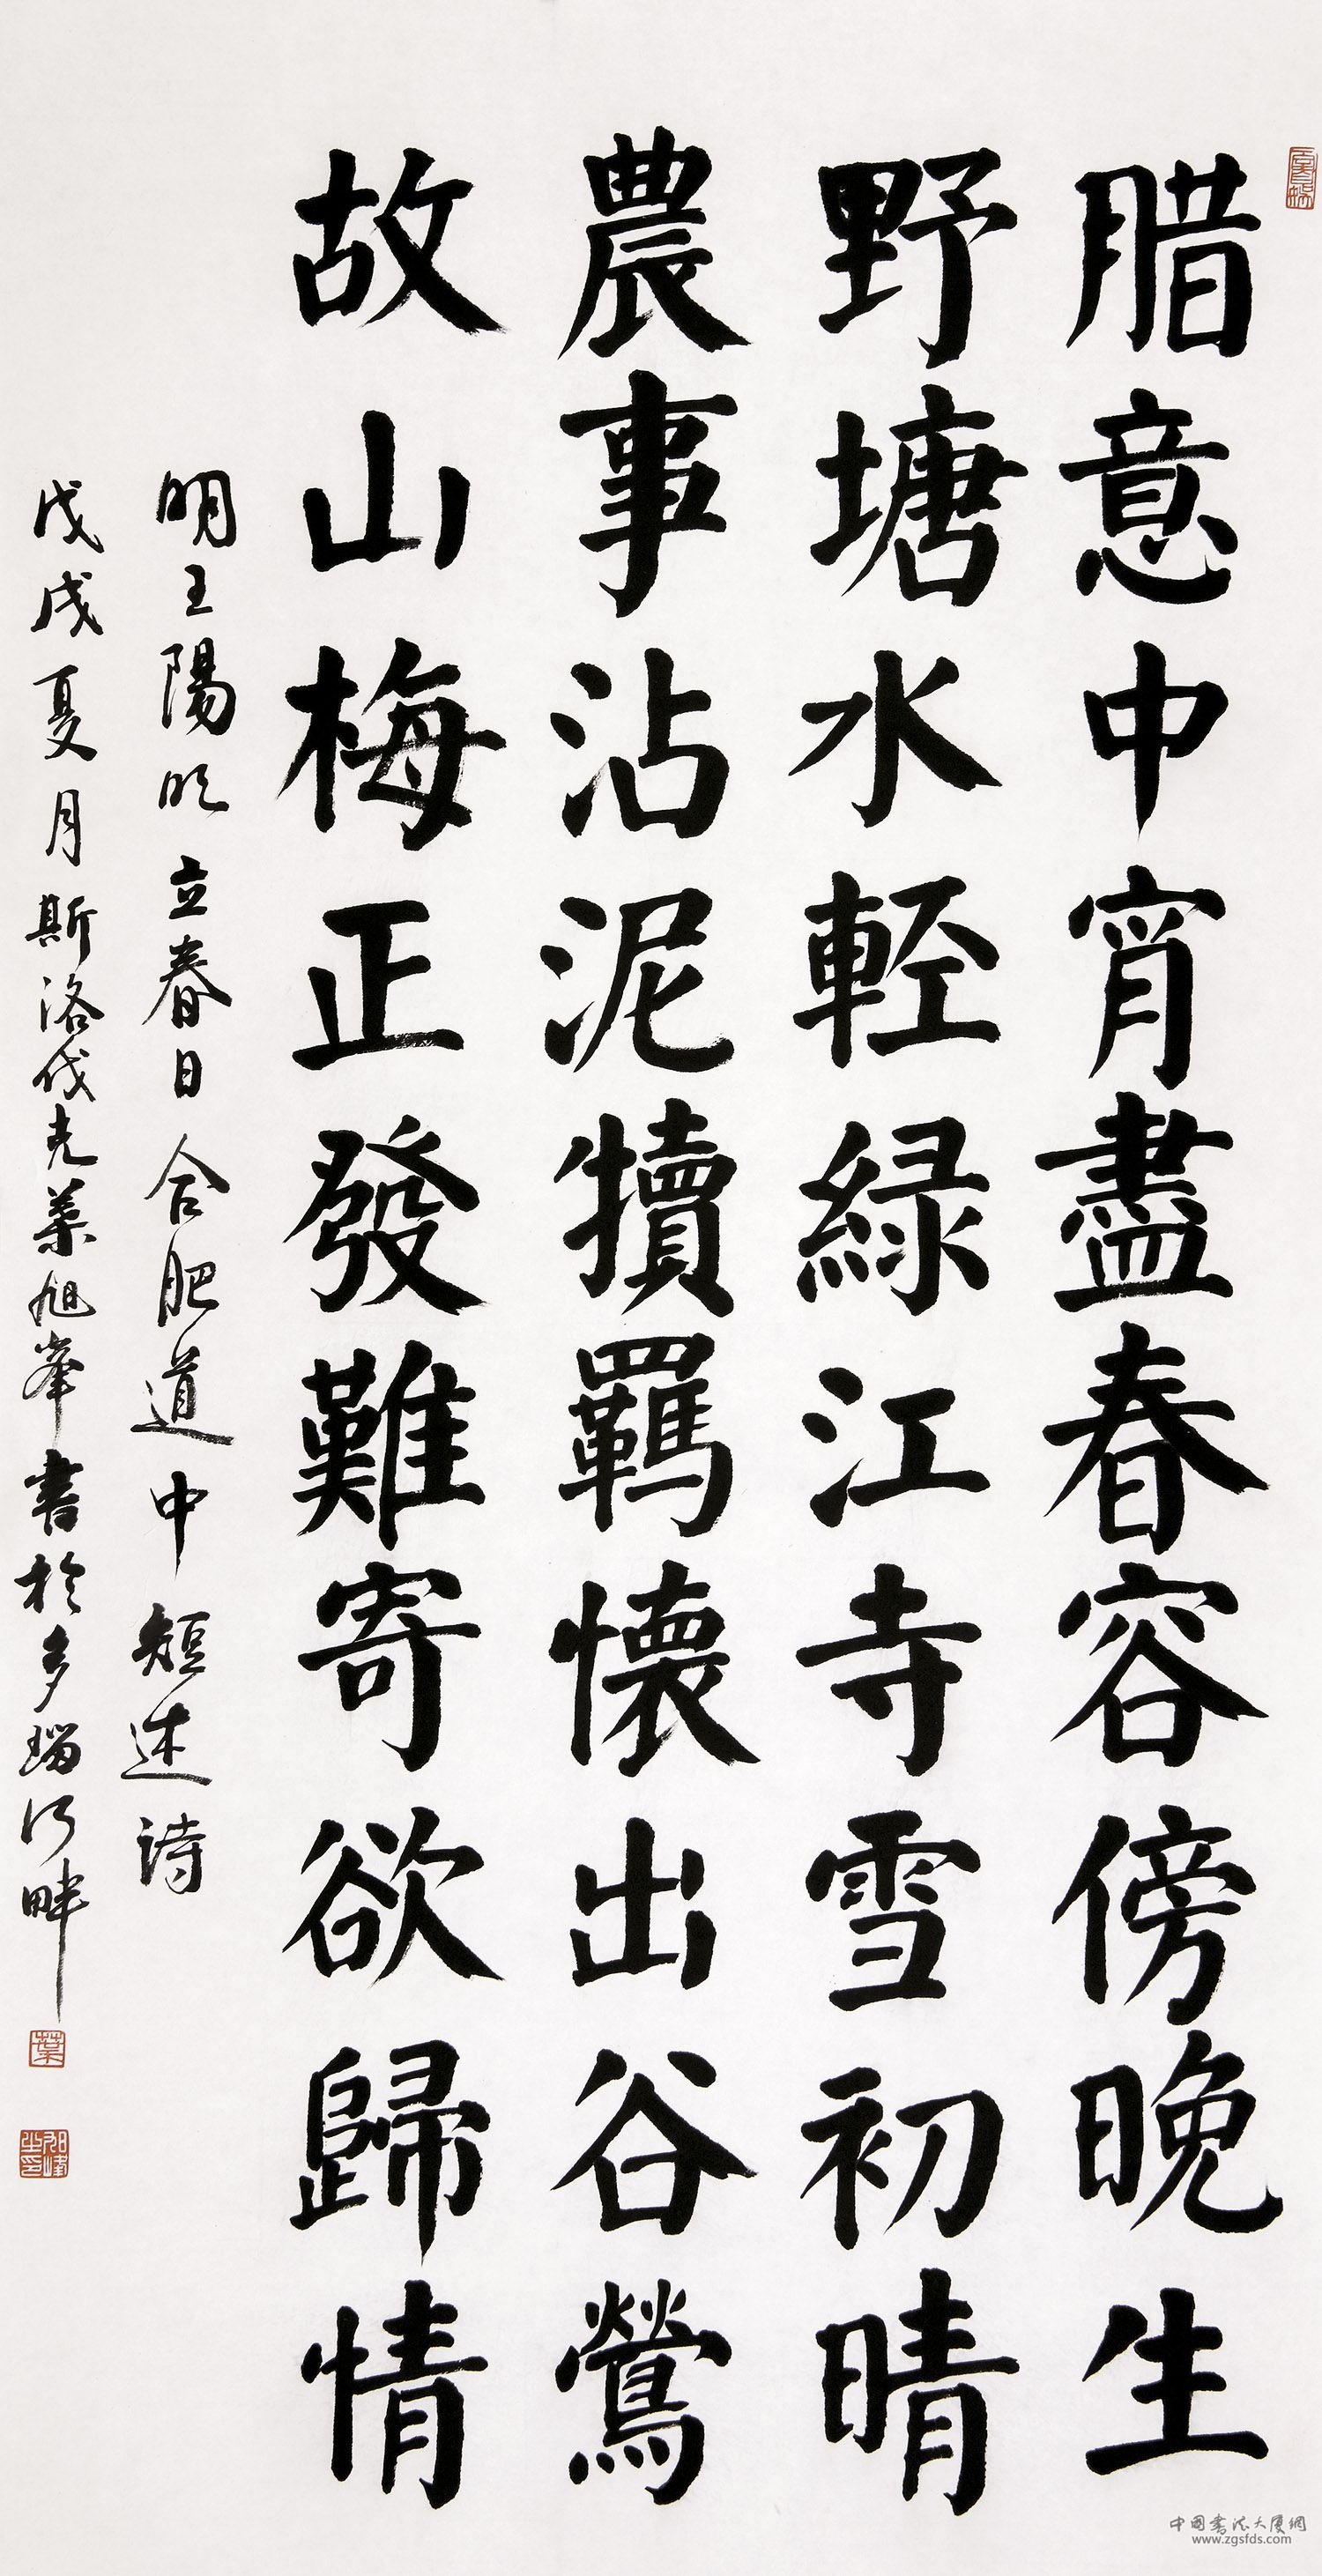 腊意中宵盡春容傍晚生
野塘水輕綠江寺雪初晴
農事沾泥犢羈懷出谷鶯
故山梅正發難寄欲歸情
明王陽明立春日合肥道中短述詩
戊戌夏月斯洛伐克葉旭峯書於多瑙河畔
葉
中國書法大廈網
www.zgsfds.com